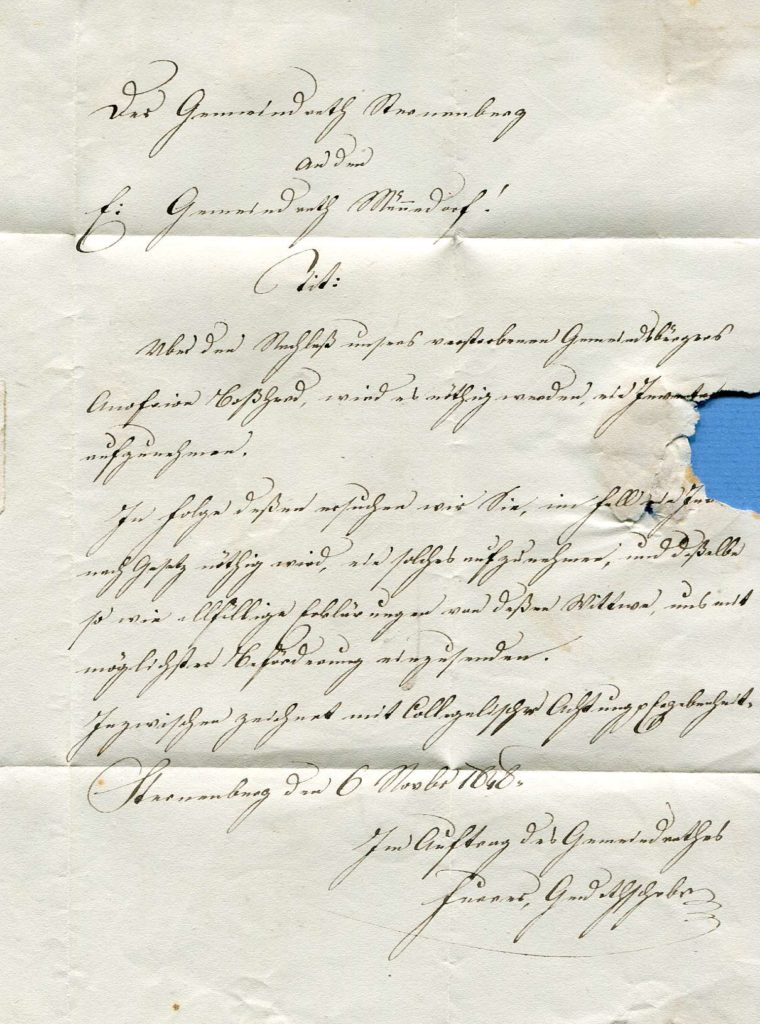 Der Gemeindrath Sternenberg
an den
E: Gemeindrath Männedorf!
Tit:
Über den Nachlaß unsers verstorbenen Gemeindsbürgers
Boßhard, wird es nöthig werden, ein
aufzunehmen.
In Folge deßen ersuchen wir Sie, im Fall ein
nach Gesetz nöthig wird, ein solches aufzunehmen, und daßelbe
so wie allfällige Erklärungen von deßen Wittwe, uns mit
möglichster Beförderung einzusenden.
Inzwischen zeichnet mit Collegialischer Achtung
Sternenberg den 6 Novbr 1848.
Im Auftrag des Gemeindrathes
Furrer, Gmdrthschrbr